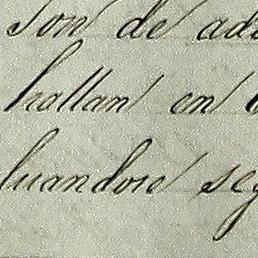 son de ada
hallan en
luandose seg